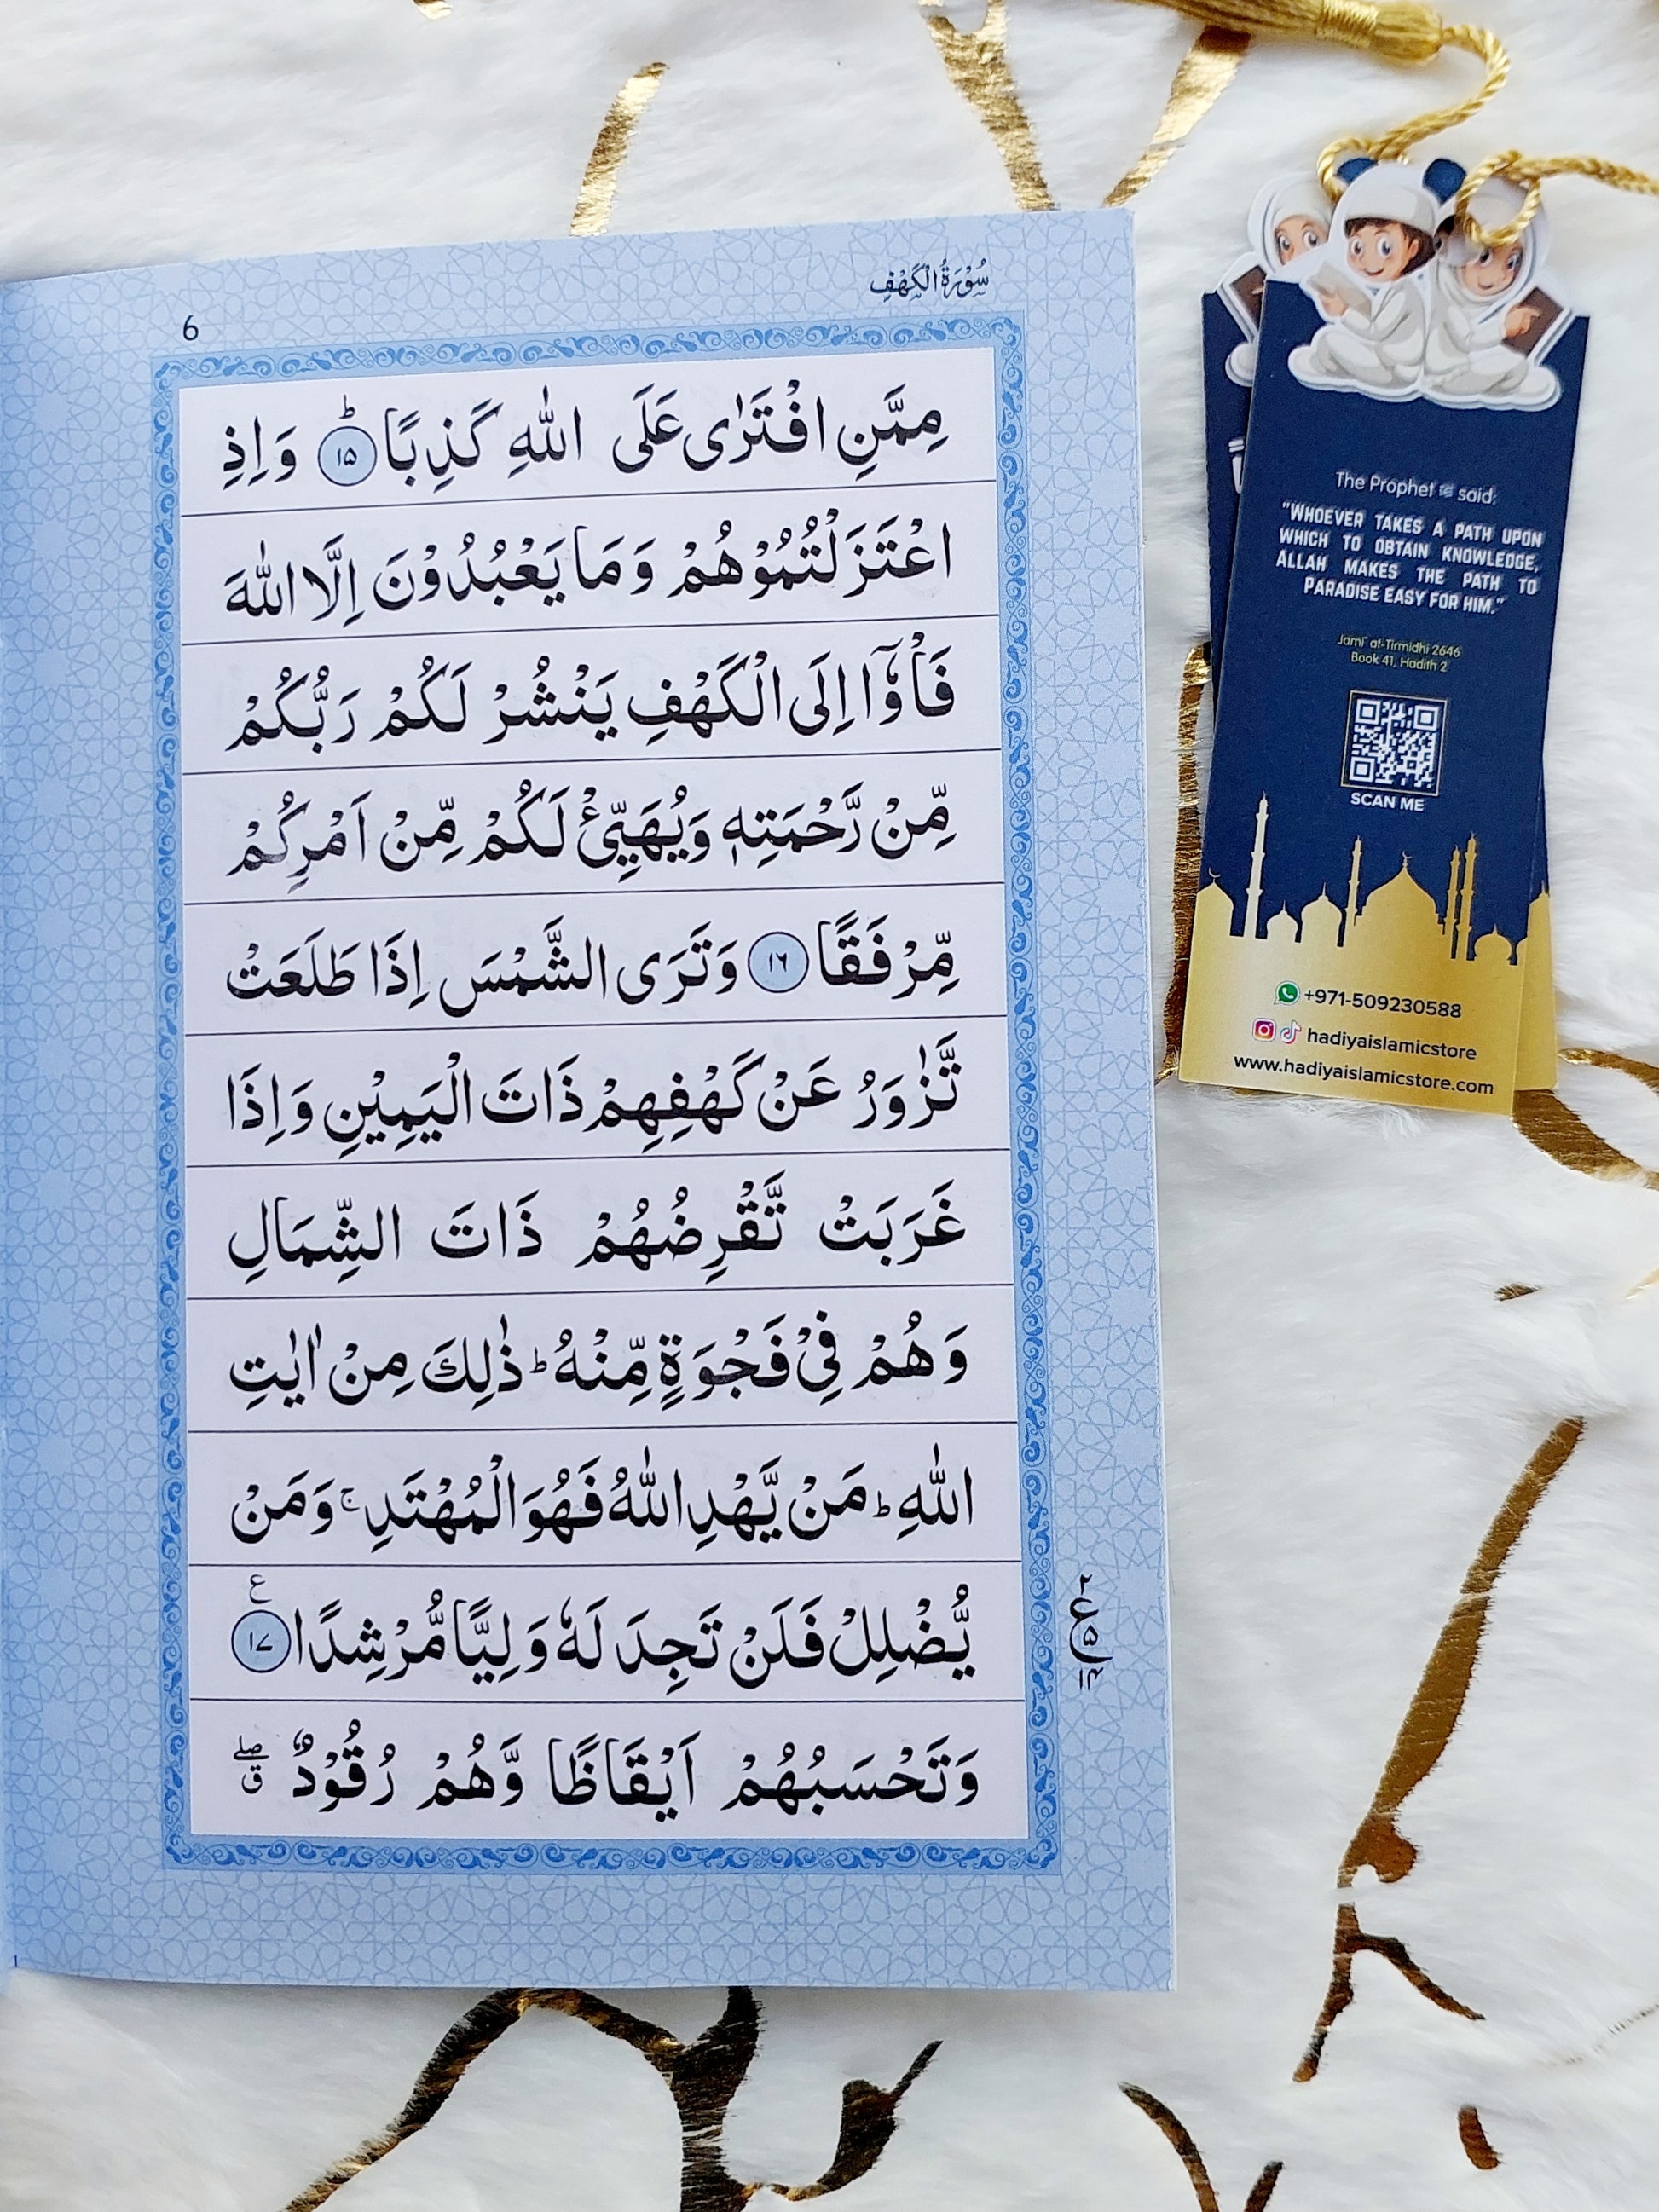 سُوْرَةُ الْكَهْفِ
6
مِمَّنِ افْتَرٰى عَلَى اللّٰهِ كَذِبًاؕ ۝۱۵ وَاِذِ
اعْتَزَلْتُمُوْهُمْ وَمَا يَعْبُدُوْنَ اِلَّا اللّٰهَ
فَاْوٗۤا اِلَى الْكَهْفِ يَنْشُرْ لَكُمْ رَبُّكُمْ
مِّنْ رَّحْمَتِهٖ وَيُهَيِّئْ لَكُمْ مِّنْ اَمْرِكُمْ
مِّرْفَقًا ۝۱۶ وَتَرَى الشَّمْسَ اِذَا طَلَعَتْ
تَّزٰوَرُ عَنْ كَهْفِهِمْ ذَاتَ الْيَمِيْنِ وَاِذَا
غَرَبَتْ تَّقْرِضُهُمْ ذَاتَ الشِّمَالِ
وَهُمْ فِيْ فَجْوَةٍ مِّنْهُ ؕ ذٰلِكَ مِنْ اٰيٰتِ
اللّٰهِ ؕ مَنْ يَّهْدِ اللّٰهُ فَهُوَ الْمُهْتَدِ ۚ وَمَنْ
يُّضْلِلْ فَلَنْ تَجِدَ لَهٗ وَلِيًّا مُّرْشِدًا ۝۱۷ ع
وَتَحْسَبُهُمْ اَيْقَاظًا وَّهُمْ رُقُوْدٌ ۖق
The Prophet ﷺ said:
"WHOEVER TAKES A PATH UPON
WHICH TO OBTAIN KNOWLEDGE,
ALLAH MAKES THE PATH TO
PARADISE EASY FOR HIM."
Jami` at-Tirmidhi 2646
Book 41, Hadith 2
SCAN ME
+971-509230588
hadiyaislamicstore
www.hadiyaislamicstore.com